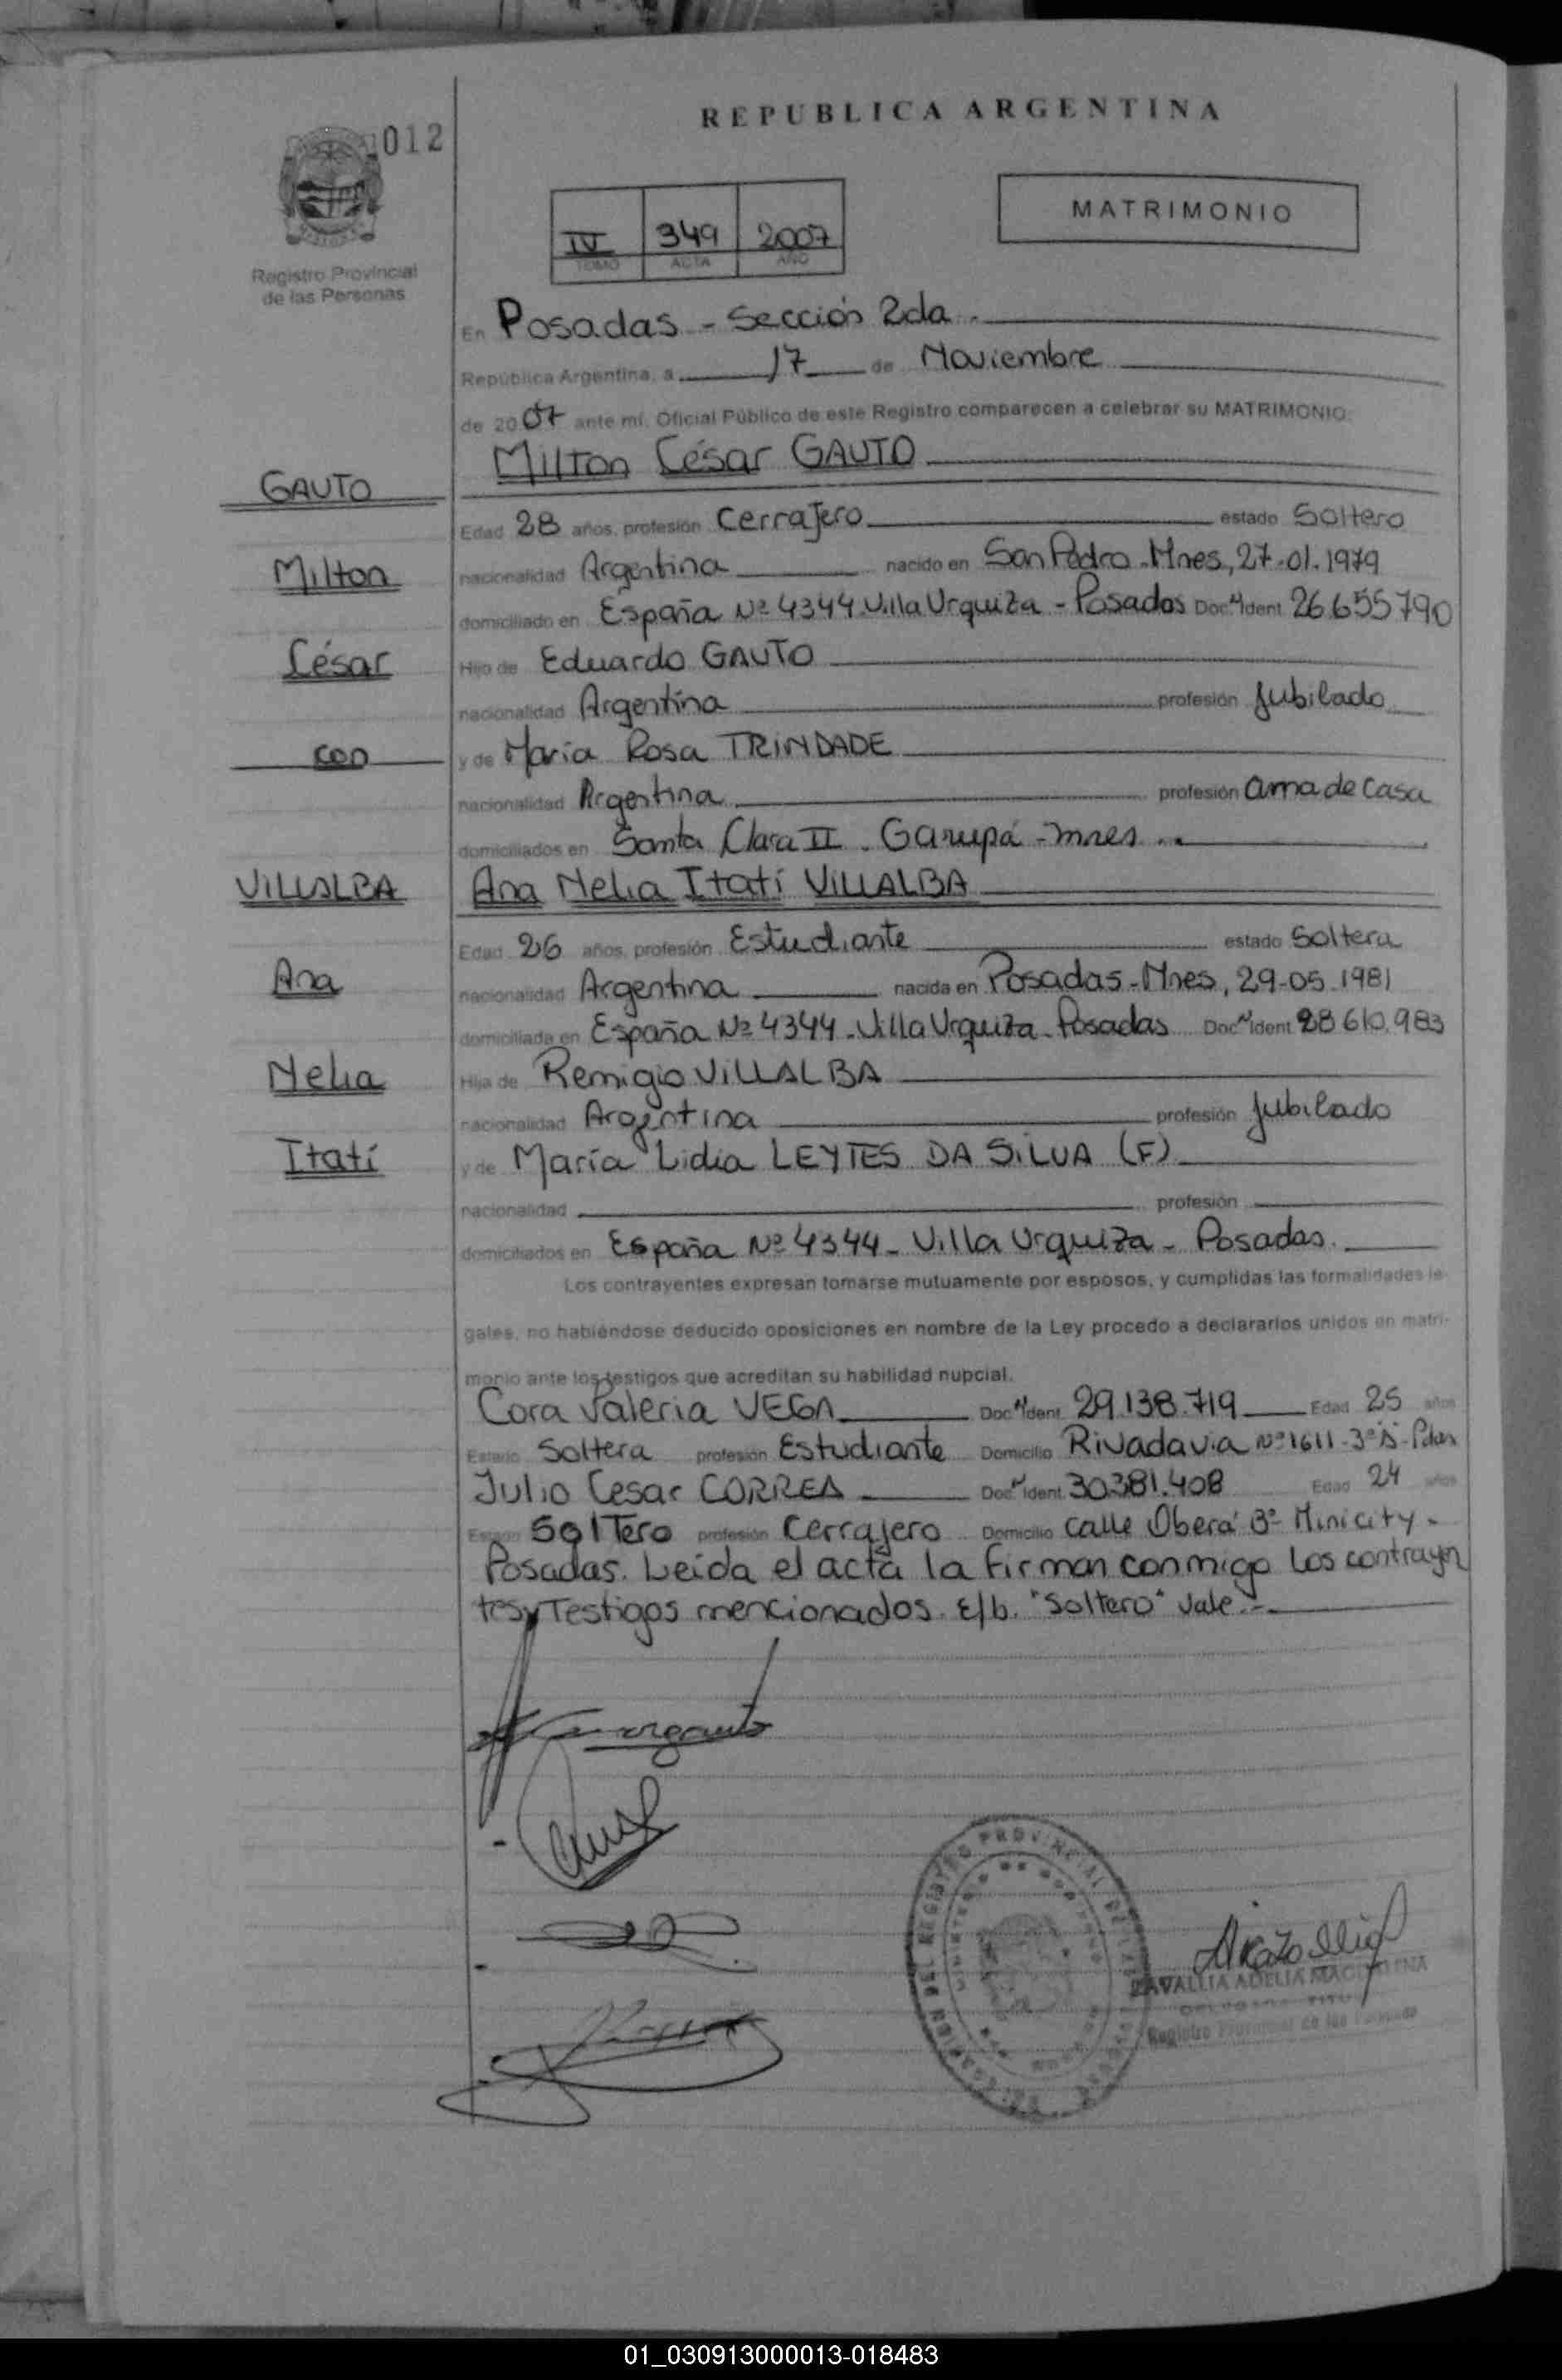 REPUBLICA ARGENTINA
012
MATRIMONIO
IV 349 2007
TOMO ACTA AÑO
Registro Provincial
de las Personas
En Posadas - Sección 2da.
República Argentina, a 17 de Noviembre
de 2007 ante mí, Oficial Público de este Registro comparecen a celebrar su MATRIMONIO:
Milton César GAUTO
GAUTO
Edad 28 años, profesión Cerrajero estado Soltero
Milton
nacionalidad Argentina nacido en San Pedro - Mnes, 27-01-1979
domiciliado en España Nº 4344 - Villa Urquiza - Posadas Doc. N° Ident. 26.655.790
César
Hijo de Eduardo GAUTO
nacionalidad Argentina profesión Jubilado
con
y de María Rosa TRINDADE
nacionalidad Argentina profesión ama de casa
domiciliados en Santa Clara II - Garupá - Mnes.
VILLALBA
Ana Nelia Itatí VILLALBA
Edad 26 años, profesión Estudiante estado Soltera
Ana
nacionalidad Argentina nacida en Posadas - Mnes, 29-05-1981
domiciliada en España Nº 4344 - Villa Urquiza - Posadas Doc. N° Ident. 28.610.983
Nelia
Hija de Remigio VILLALBA
nacionalidad Argentina profesión Jubilado
Itatí
y de María Lidia LEYTES DA SILVA (F)
nacionalidad profesión
domiciliados en España Nº 4344 - Villa Urquiza - Posadas.
Los contrayentes expresan tomarse mutuamente por esposos, y cumplidas las formalidades le-
gales, no habiéndose deducido oposiciones en nombre de la Ley procedo a declararlos unidos en matri-
monio ante los testigos que acreditan su habilidad nupcial.
Cora Valeria VEGA Doc. N° Ident. 29.138.719 Edad 25 años
Estado Soltera profesión Estudiante Domicilio Rivadavia Nº 1611 - 3º A - Pdas
Julio Cesar CORREA Doc. N° Ident. 30.381.408 Edad 24 años
Estado Soltero profesión Cerrajero Domicilio calle Oberá Bº Minicity -
Posadas. Leída el acta la firman conmigo los contrayen
tes y Testigos mencionados. E/b. "Soltero" Vale.-
ZAVALLIA ADELIA MAGDALENA
Registro Provincial de las Personas
01_030913000013-018483